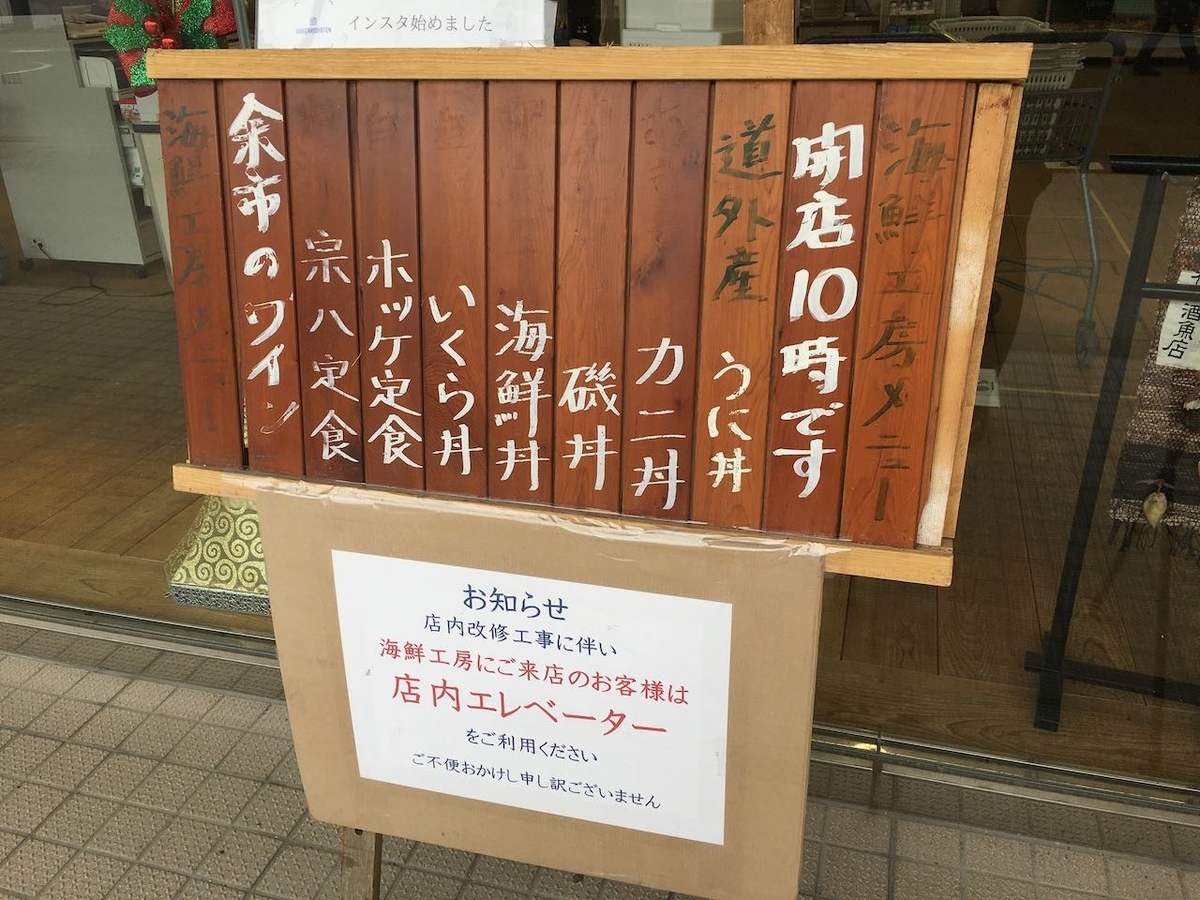 インスタ始めました
海鮮工房メニュー
開店10時です
道外産 うに丼
カニ丼
磯丼
海鮮丼
いくら丼
ホッケ定食
宗八定食
余市のワイン
海鮮工房メニュー
お知らせ
店内改修工事に伴い
海鮮工房にご来店のお客様は
店内エレベーター
をご利用ください
ご不便おかけし申し訳ございません
酒魚店